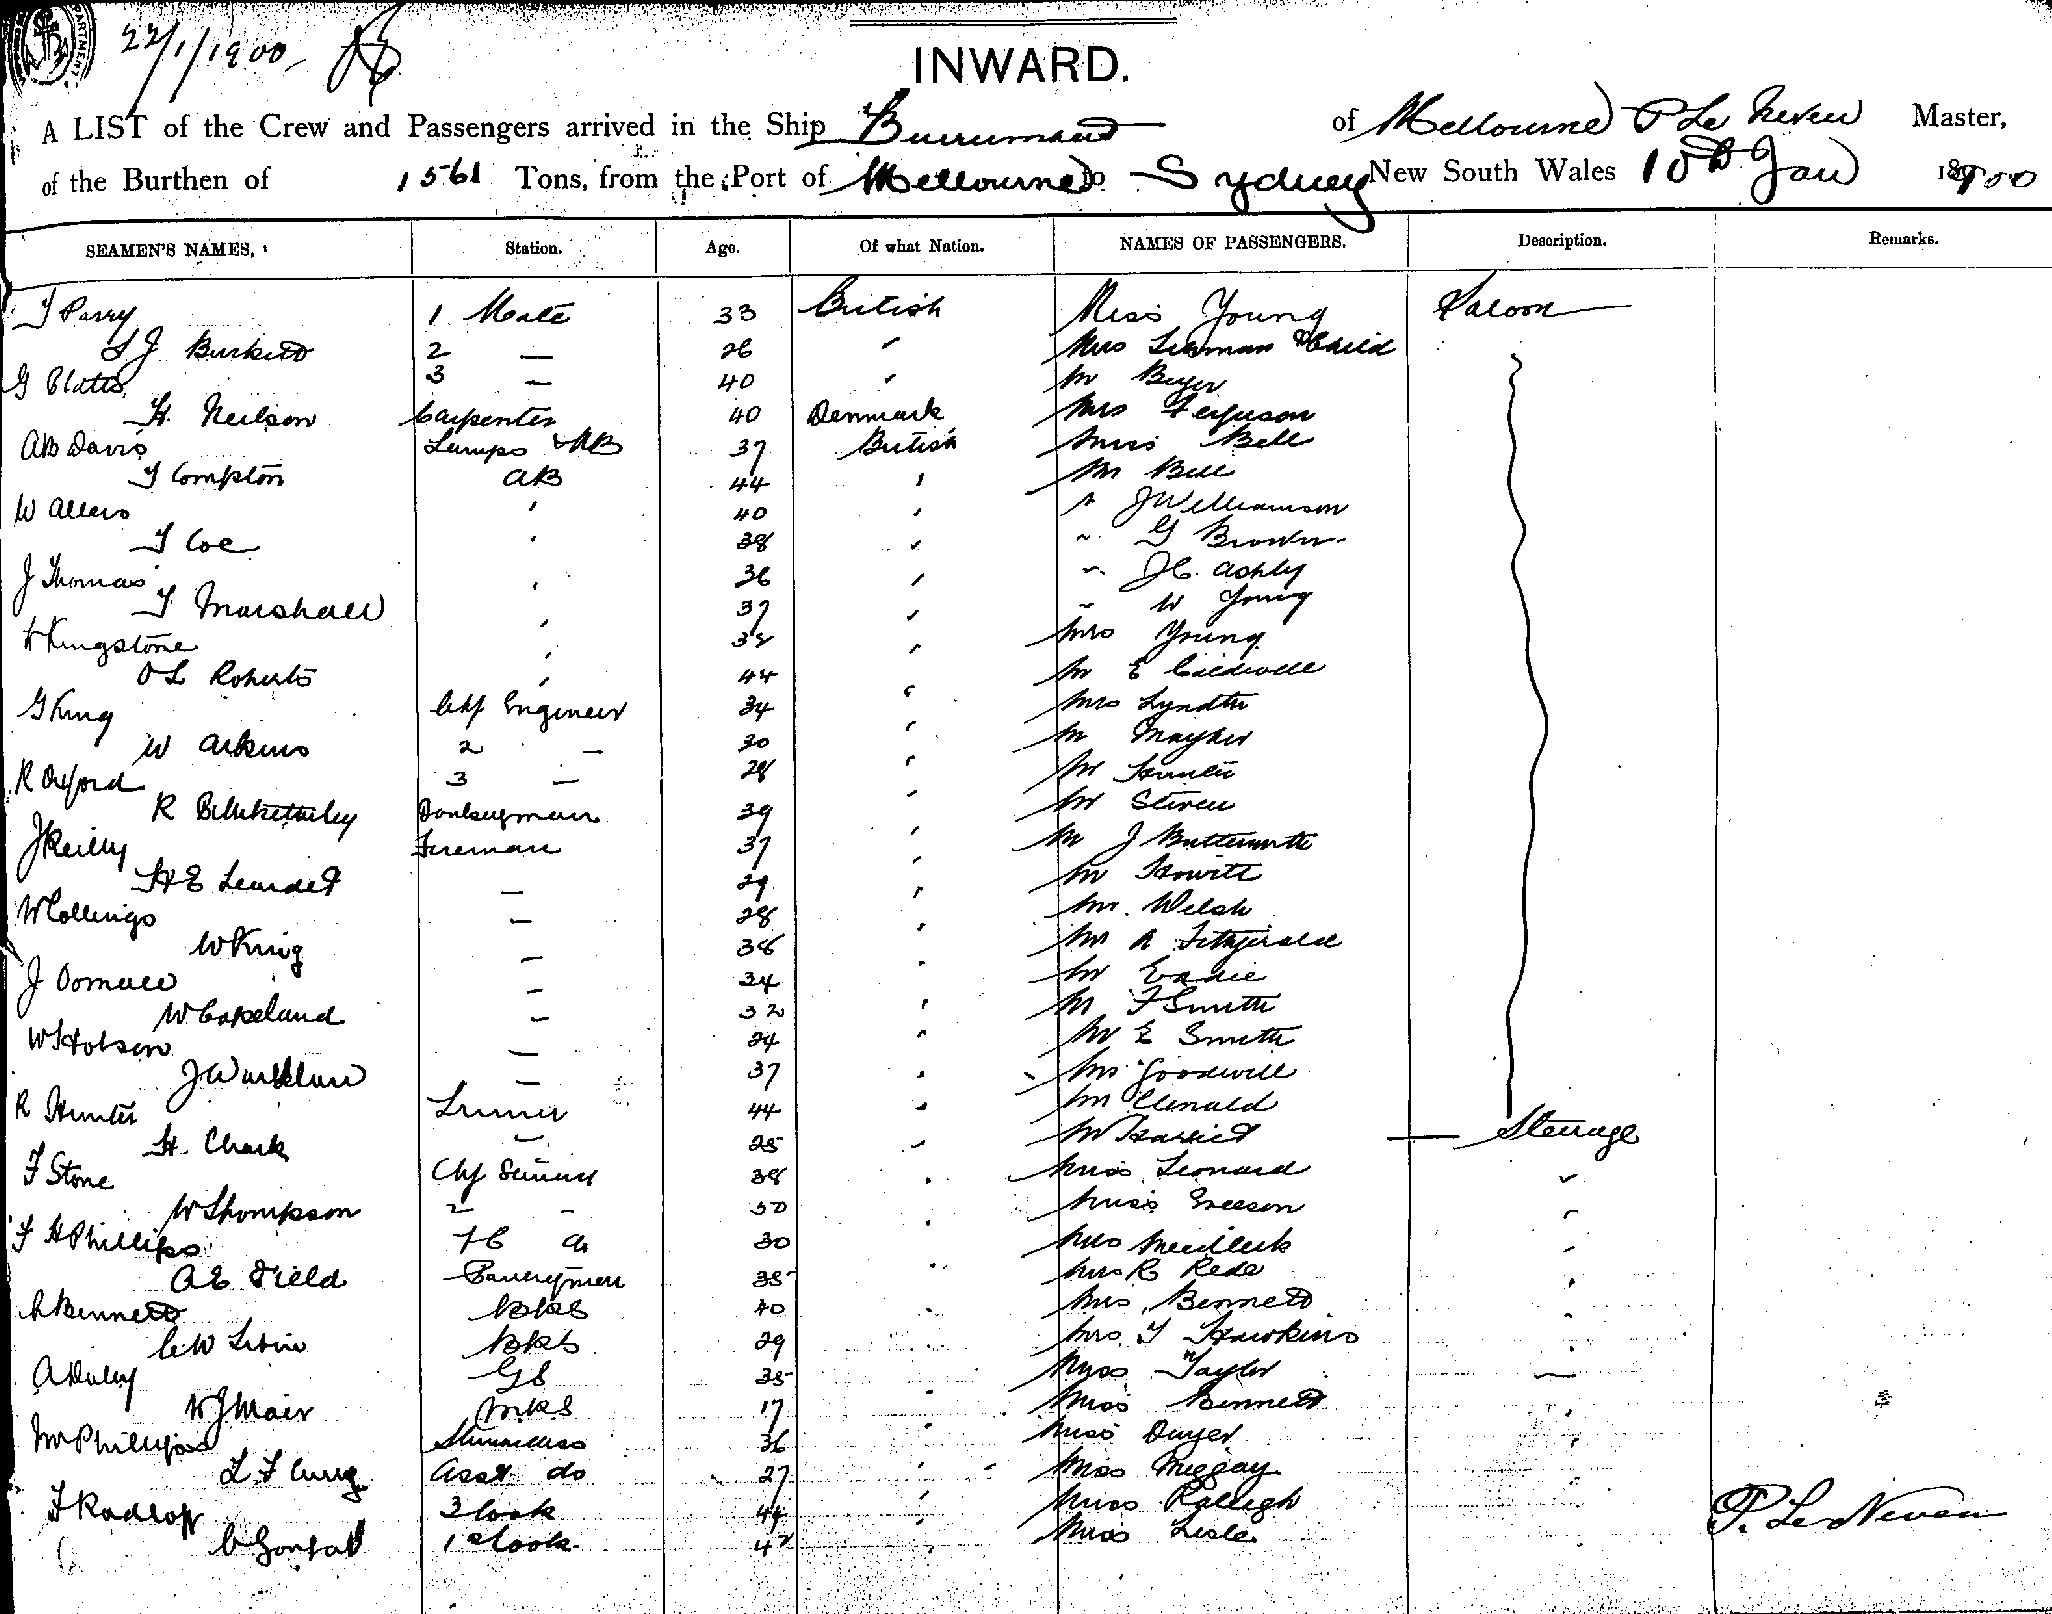 DEPARTMENT
22/1/1900
INWARD.
A LIST of the Crew and Passengers arrived in the Ship Burrumbeet of Melbourne P Le Neveu Master,
of the Burthen of 1561 Tons, from the Port of Melbourne to Sydney New South Wales 10th Jan 1900
SEAMEN'S NAMES. Station. Age. Of what Nation. NAMES OF PASSENGERS. Description. Remarks.
J Parry 1 Mate 33 British Miss Young Saloon
J Burkett 2 — 26 " Mrs Seaman & Child
G Platts 3 — 40 " Mr Beyer
H. Neilson Carpenter 40 Denmark Mrs Ferguson
AB Davis Lamps & AB 37 British Miss Bell
J Compton AB 44 " Mr Bell
W Allers " 40 " " J Williamson
J Coe " 38 " " G Brown
J Thomas " 36 " " J C. Ashly
J Marshall " 37 " " W Young
H Kingstone " 38 " Mrs Young
O L Roberts " 44 " Mr E Caldwell
G King Chf Engineer 34 " Mrs
W Arkins 2 — 30 " Mr
R Oxford 3 — 28 " Mr Hunter
R Donkeyman 39 " Mr Steven
J Reilly Fireman 37 " Mr J Butterworth
H E — 29 " Mr Howitt
W Collings — 28 " Mr. Welsh
W King — 38 " Mr A Fitzgerald
J — 34 " Mr Eadie
W Copeland — 32 " Mr F Smith
W Hobson — 24 " Mr E Smith
J — 37 " Mrs Goodwill
R Hunter Trimmer 44 " Mr Clenald
H. Clark — 25 " Mr — Steerage
F Stone Chf Steward 38 " Miss Leonard "
W Thompson 2 — 30 " Miss Greeson "
F H Phillips F C 30 " Mrs "
A E Field Pantryman 35 " Mrs R Rede "
A Bennett 40 " Mrs Bennett "
C W 29 " Mrs J Hawkins "
A Daley GS 35 Miss Taylor —
W J Mair 17 " Miss Bennett "
Mrs Phillips Stewardess 36 " Miss Dwyer "
L F Asst do 27 " Miss
F Radloff 3 Cook 44 " Miss Raleigh
C 1 Cook 42 " Miss Lisle
P. Le Neveu